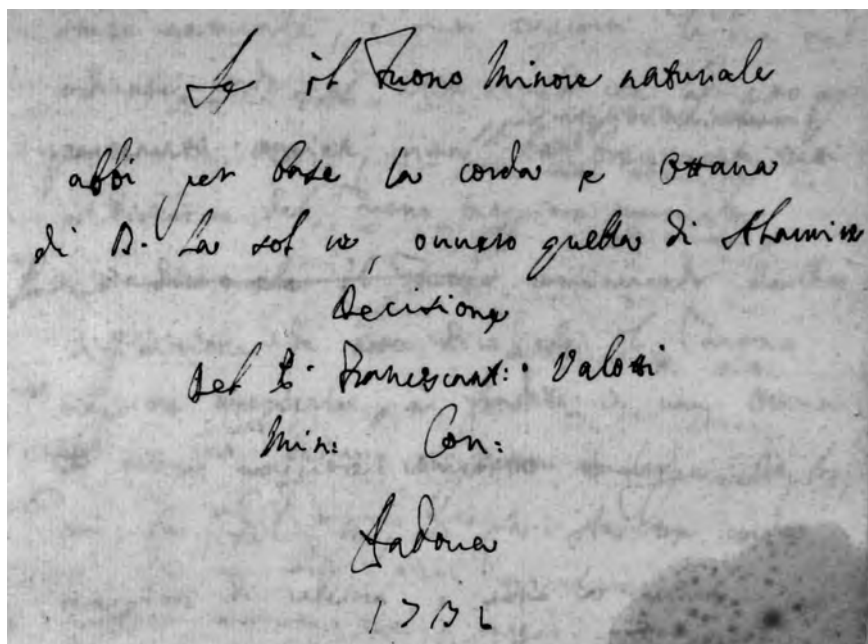 Se il Tuono Minore naturale
abbi per base la corda e ottava
di D. La sol re, ovvero quella di Alamire
Decisione
Del P. Francescant: Valotti
Min: Con:
Padova